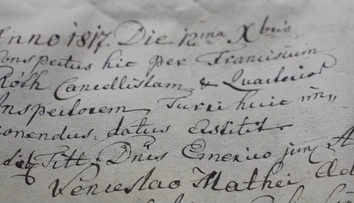 Anno 1817. Die 12ma Xbris
Conspectus hic per Franciscum
Róth Cancellistam & Quartirios
Inspectorem Turri huic
ponendus, datus exstitit.
Titt. Dnus Emerico jun
Venceslao Mathei Ad